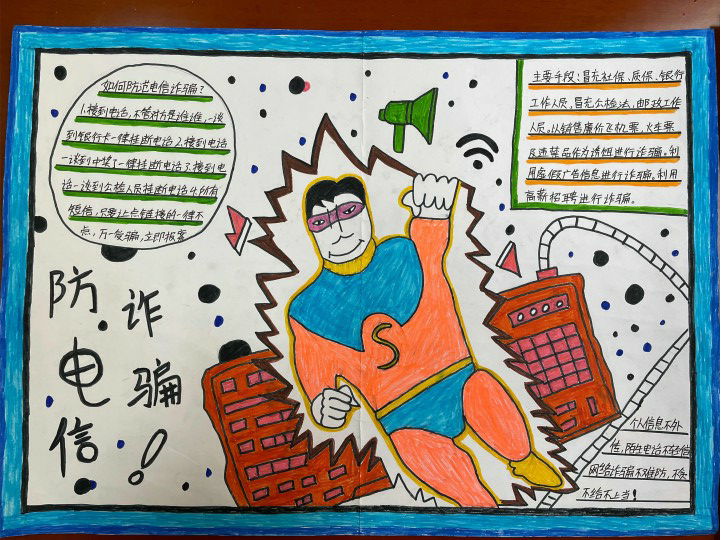 如何防范电信诈骗？
1.接到电话,不管对方是谁谁,一谈
到银行卡一律挂断电话2.接到电话
一谈到中奖了一律挂断电话3.接到电
话一谈到公检人员挂断电话4.所有
短信,只要让点链接的一律不
点,万一受骗,立即报案
主要手段：冒充社保、质保、银行
工作人员,冒充公检法,邮政工作
人员。以销售廉价飞机票、火车票
及违禁品作为诱饵进行诈骗。利
用虚假广告信息进行诈骗。利用
高薪招聘进行诈骗。
防
诈
电
骗
信
！
S
个人信息不外
传,陌生电话不轻信
网络诈骗不难防,不贪
不给不上当！